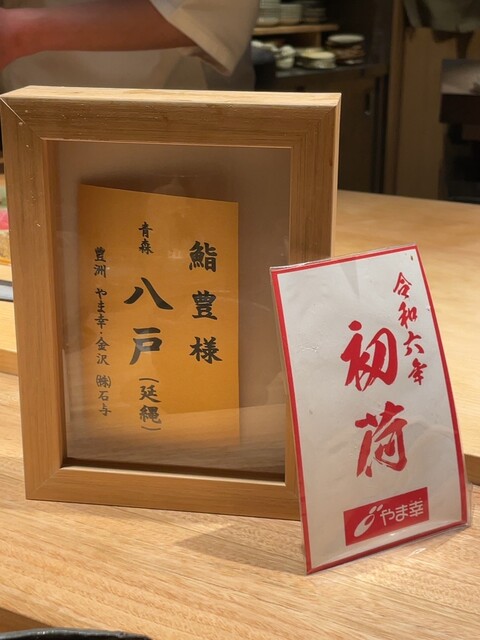 鮨豊様
青森
八戸(延縄)
豊洲 やま幸・金沢 ㈱石与
令和六年
初荷
やま幸